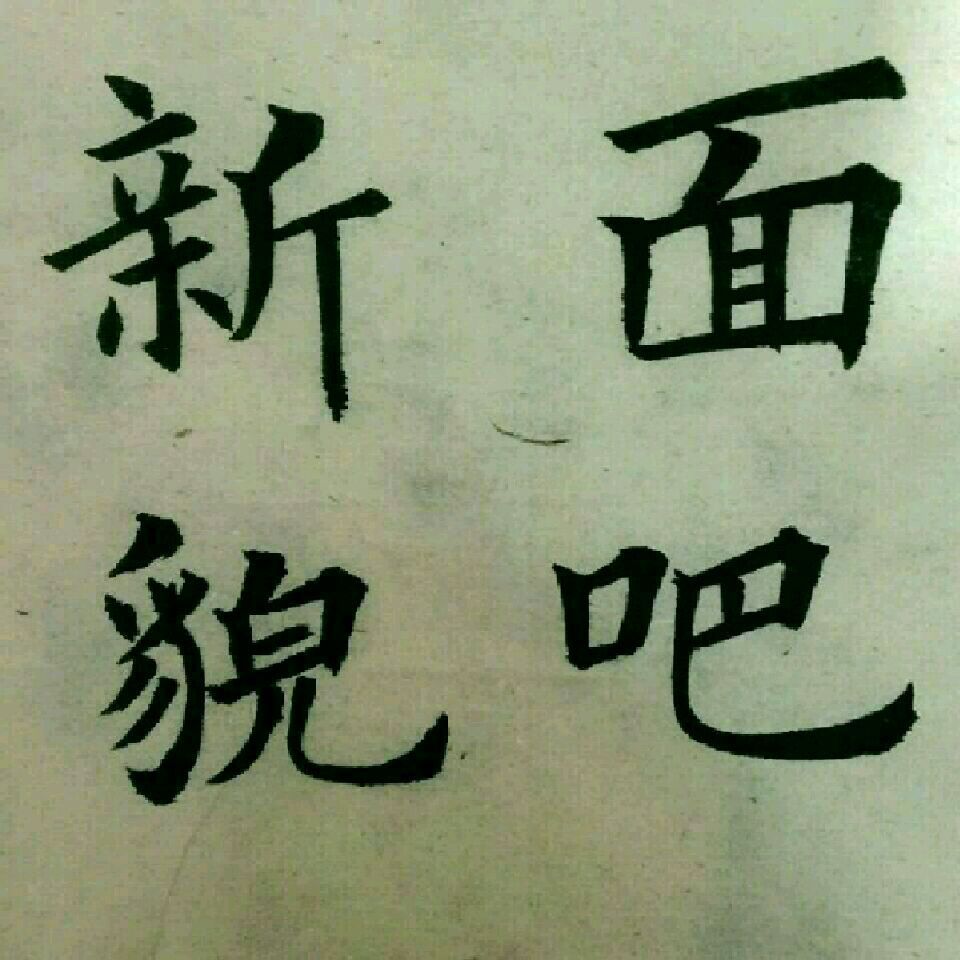 面吧
新貌